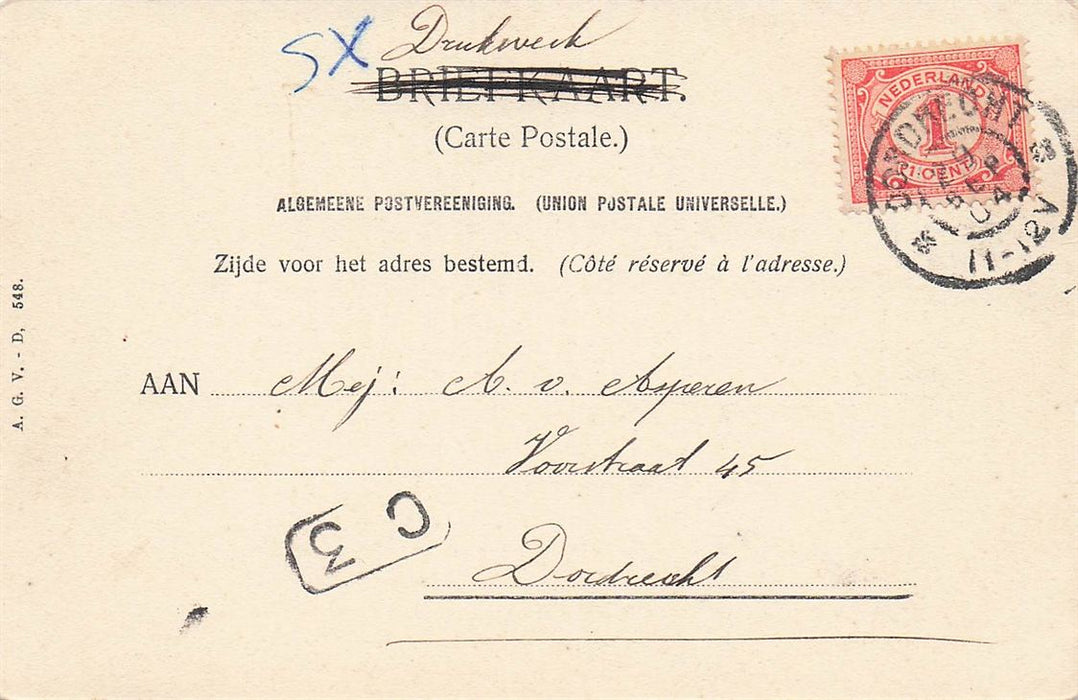 SX Drukwerk
BRIEFKAART.
(Carte Postale.)
ALGEMEENE POSTVEREENIGING. (UNION POSTALE UNIVERSELLE.)
Zijde voor het adres bestemd. (Côté réservé à l'adresse.)
NEDERLAND
1
1 CENT
DORDRECHT
SEP
04
11-12V
A. G. V. - D, 548.
AAN Mej: A. v. Asperen
Voorstraat 45
Dordrecht
C 3